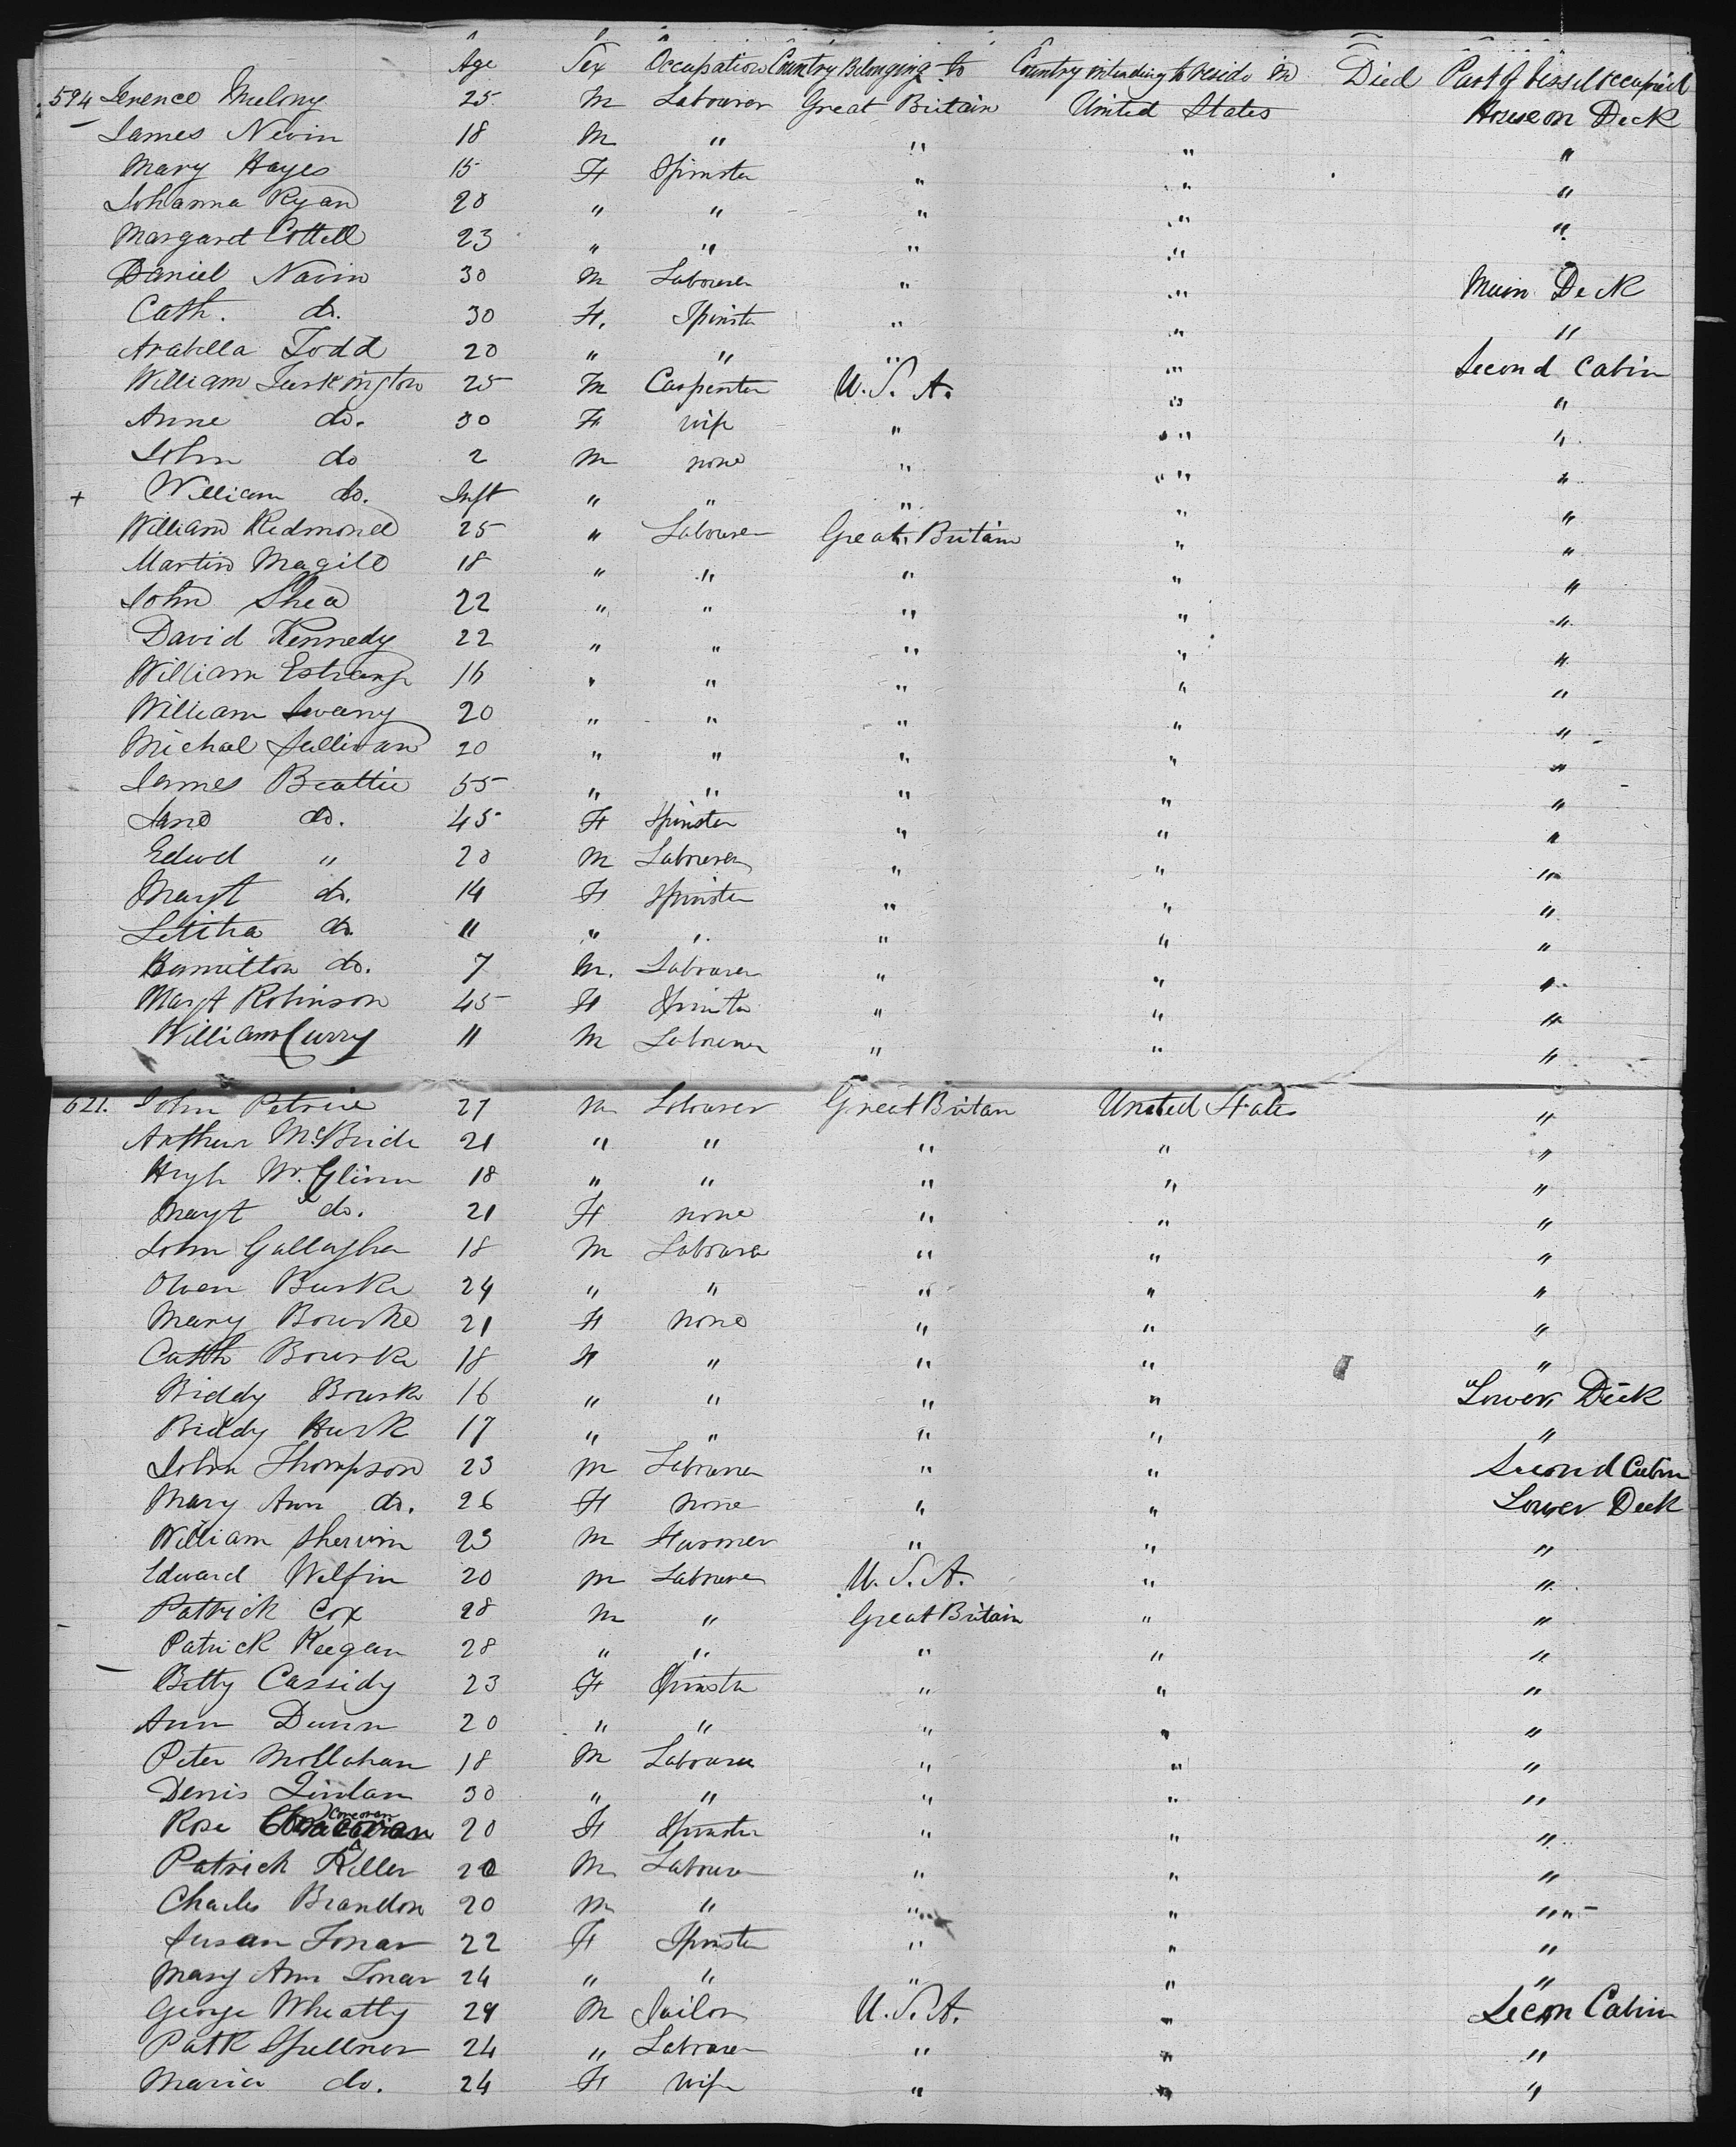 Age Sex Occupation Country Belonging to Country intending to reside in Died Part of Vessel occupied
594 Terence Mulony 25 M Labourer Great Britain United States House on Deck
James Nevin 18 M " " " "
Mary Hayes 15 F Spinster " " "
Johanna Ryan 20 " " " " "
Margaret Cottell 23 " " " " "
Daniel Navin 30 M Labourer " " Main Deck
Cath. do. 30 F. Spinster " " "
Arabella Todd 20 " " " " Second Cabin
William Tuskington 25 M Carpenter U.S.A. " "
Anne do. 30 F wife " " "
John do 2 M none " " "
+ William do. Inft " " " " "
William Redmond 25 " Labourer Great Britain " "
Martin Magill 18 " " " " "
John Shea 22 " " " " "
David Kennedy 22 " " " " "
William Estrange 16 " " " " "
William Sweeny 20 " " " " "
Michael Sullivan 20 " " " " "
James Beattie 55 " " " " "
Jane do. 45 F Spinster " " "
Edwd " 20 M Labourer " " "
Margt do. 14 F Spinster " " "
Letitia do. 11 " " " " "
Hamilton do. 7 M. Labourer " " "
Margt Robinson 45 F Spinster " " "
William Curry 11 M Labourer " " "
621. John Petrie 27 M Labourer Great Britan United States "
Arthur McBride 21 " " " " "
Hugh Mc.Glinn 18 " " " " "
Margt do. 21 F none " " "
John Gallagher 18 M Labourer " " "
Owen Burke 24 " " " " "
Mary Bourke 21 F none " " "
Cath Bourke 18 F " " " "
Biddy Bourke 16 " " " " Lower Deck
Biddy Husk 17 " " " " "
John Thompson 23 M Labourer " " Second Cabin
Mary Ann do. 26 F none " " Lower Deck
William Shervin 23 M Farmer " " "
Edward Welfin 20 M Labourer U.S.A. " "
Patrick Cox 28 M " Great Britain " "
Patrick Keegan 28 " " " " "
Betty Cassidy 23 F Spinster " " "
Ann Dunn 20 " " " " "
Peter Mollahan 18 M Labourer " " "
Denis Quinlan 30 " " " " "
Rose Corcoran 20 F Spinster " " "
Patrick Keller 20 M Labourer " " "
Charles Brandon 20 M " " " "
Susan Tonar 22 F Spinster " " "
Mary Ann Tonar 24 " " " " "
George Wheatty 29 M Sailor U.S.A. " Secon Cabin
Patk Spellner 24 " Labourer " " "
Maria do. 24 F Wife " " "